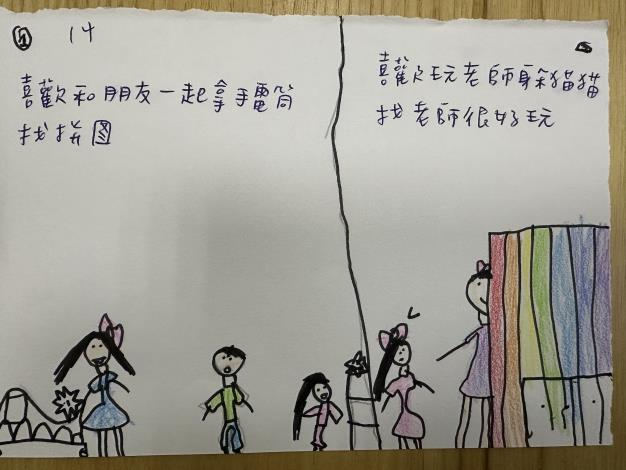 ① 14
喜歡和朋友一起拿手電筒
找拼图
喜歡玩老師躲貓貓
找老師很好玩